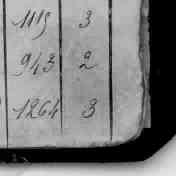 1119 3
943 2
1264 3